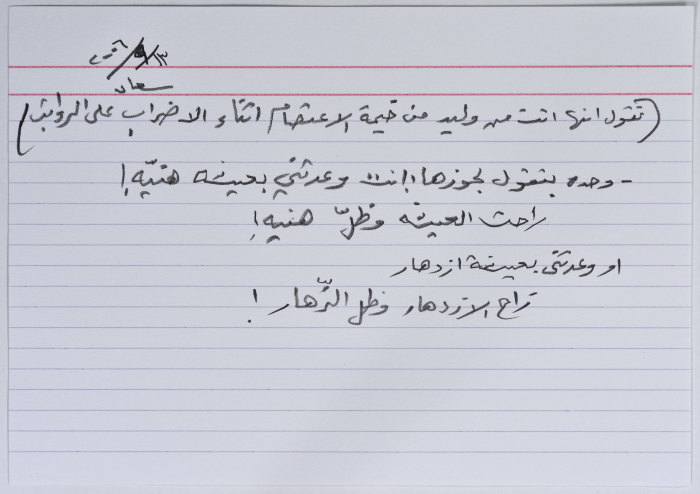 ١٣/٩/٢٠٠٦
سعاد
(تقول انها اتت من وليد من خيمة الاعتصام اثناء الاضراب على الرواتب)
- وحده بتقول لجوزها: إنت وعدتني بعيشه هنيّه!
راحت العيشه وظلّ هنيه!
او وعدتني بعيشة ازدهار
راح الازدهار وظل الزّهار!